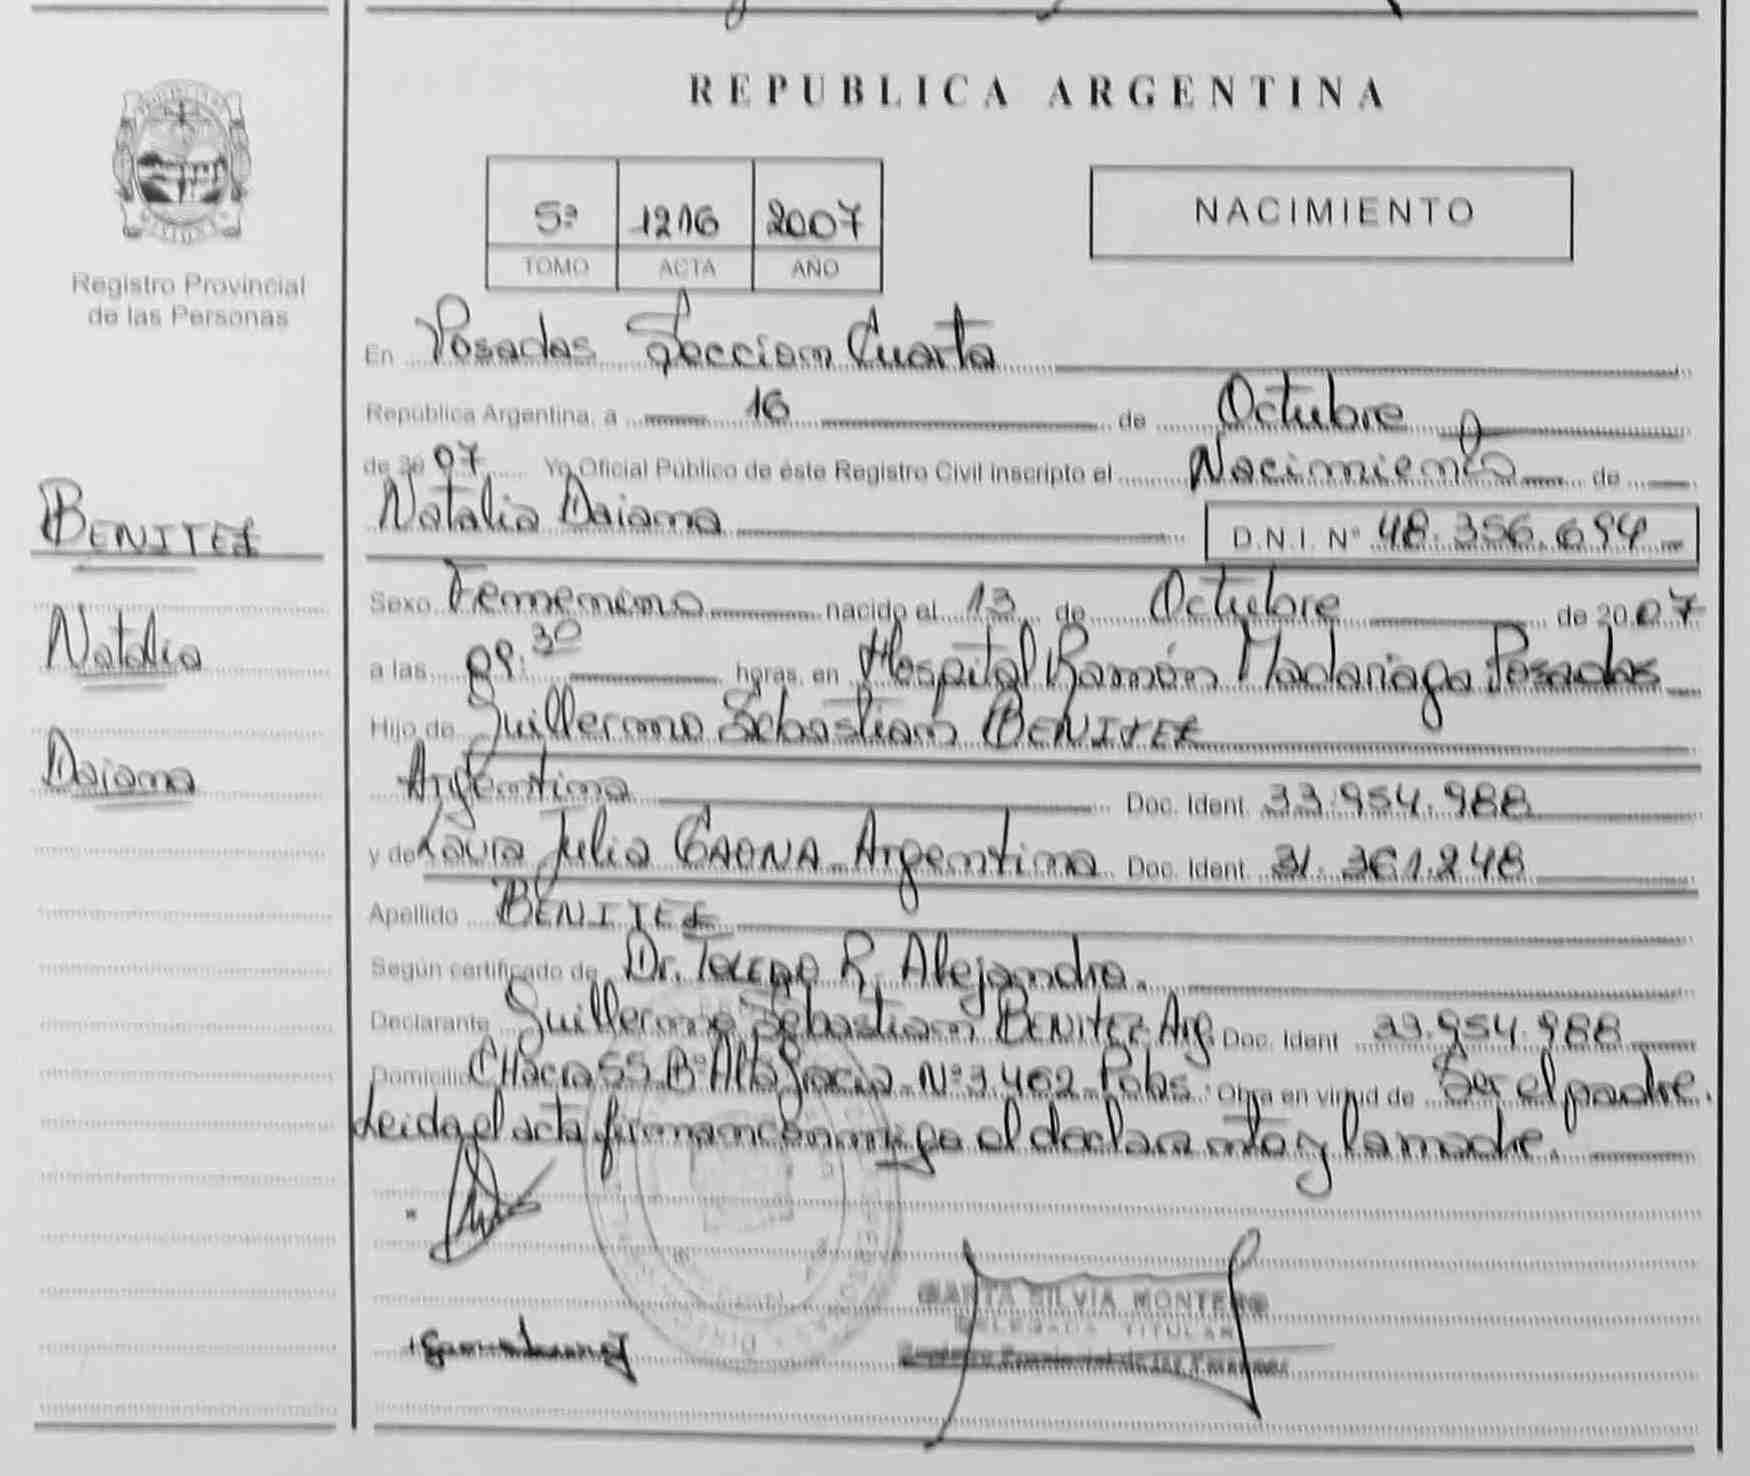 REPUBLICA ARGENTINA
5ª 1216 2007
TOMO ACTA AÑO
NACIMIENTO
Registro Provincial
de las Personas
En Posadas Seccion Cuarta
República Argentina, a 16 de Octubre
de 20 07 Yo Oficial Público de éste Registro Civil inscripto el Nacimiento de
Natalia Daiana D.N.I. Nº 48.356.694
BENITEZ
Natalia
Daiana
Sexo Femenino nacido el 13 de Octubre de 2007
a las 09:30 horas, en Hospital Ramón Madariaga Posadas
Hijo de Guillermo Sebastian BENITEZ
Argentina Doc. Ident. 33.954.988
y de Laura Julia Argentina Doc. Ident. 31.361.248
Apellido BENITEZ
Según certificado de Dr. Toledo R. Alejandro.
Declarante Guillermo Sebastian BENITEZ Arg. Doc. Ident. 33.954.988
Domicilio CHacra 55 Bº Alta Gracia Nº 3.462 Pdas. Obra en virtud de Ser el padre.
Leida el acta firman conmigo el declarante y la madre.
MARTA SILVIA MONTERO
DELEGADA TITULAR
Registro Provincial de las Personas